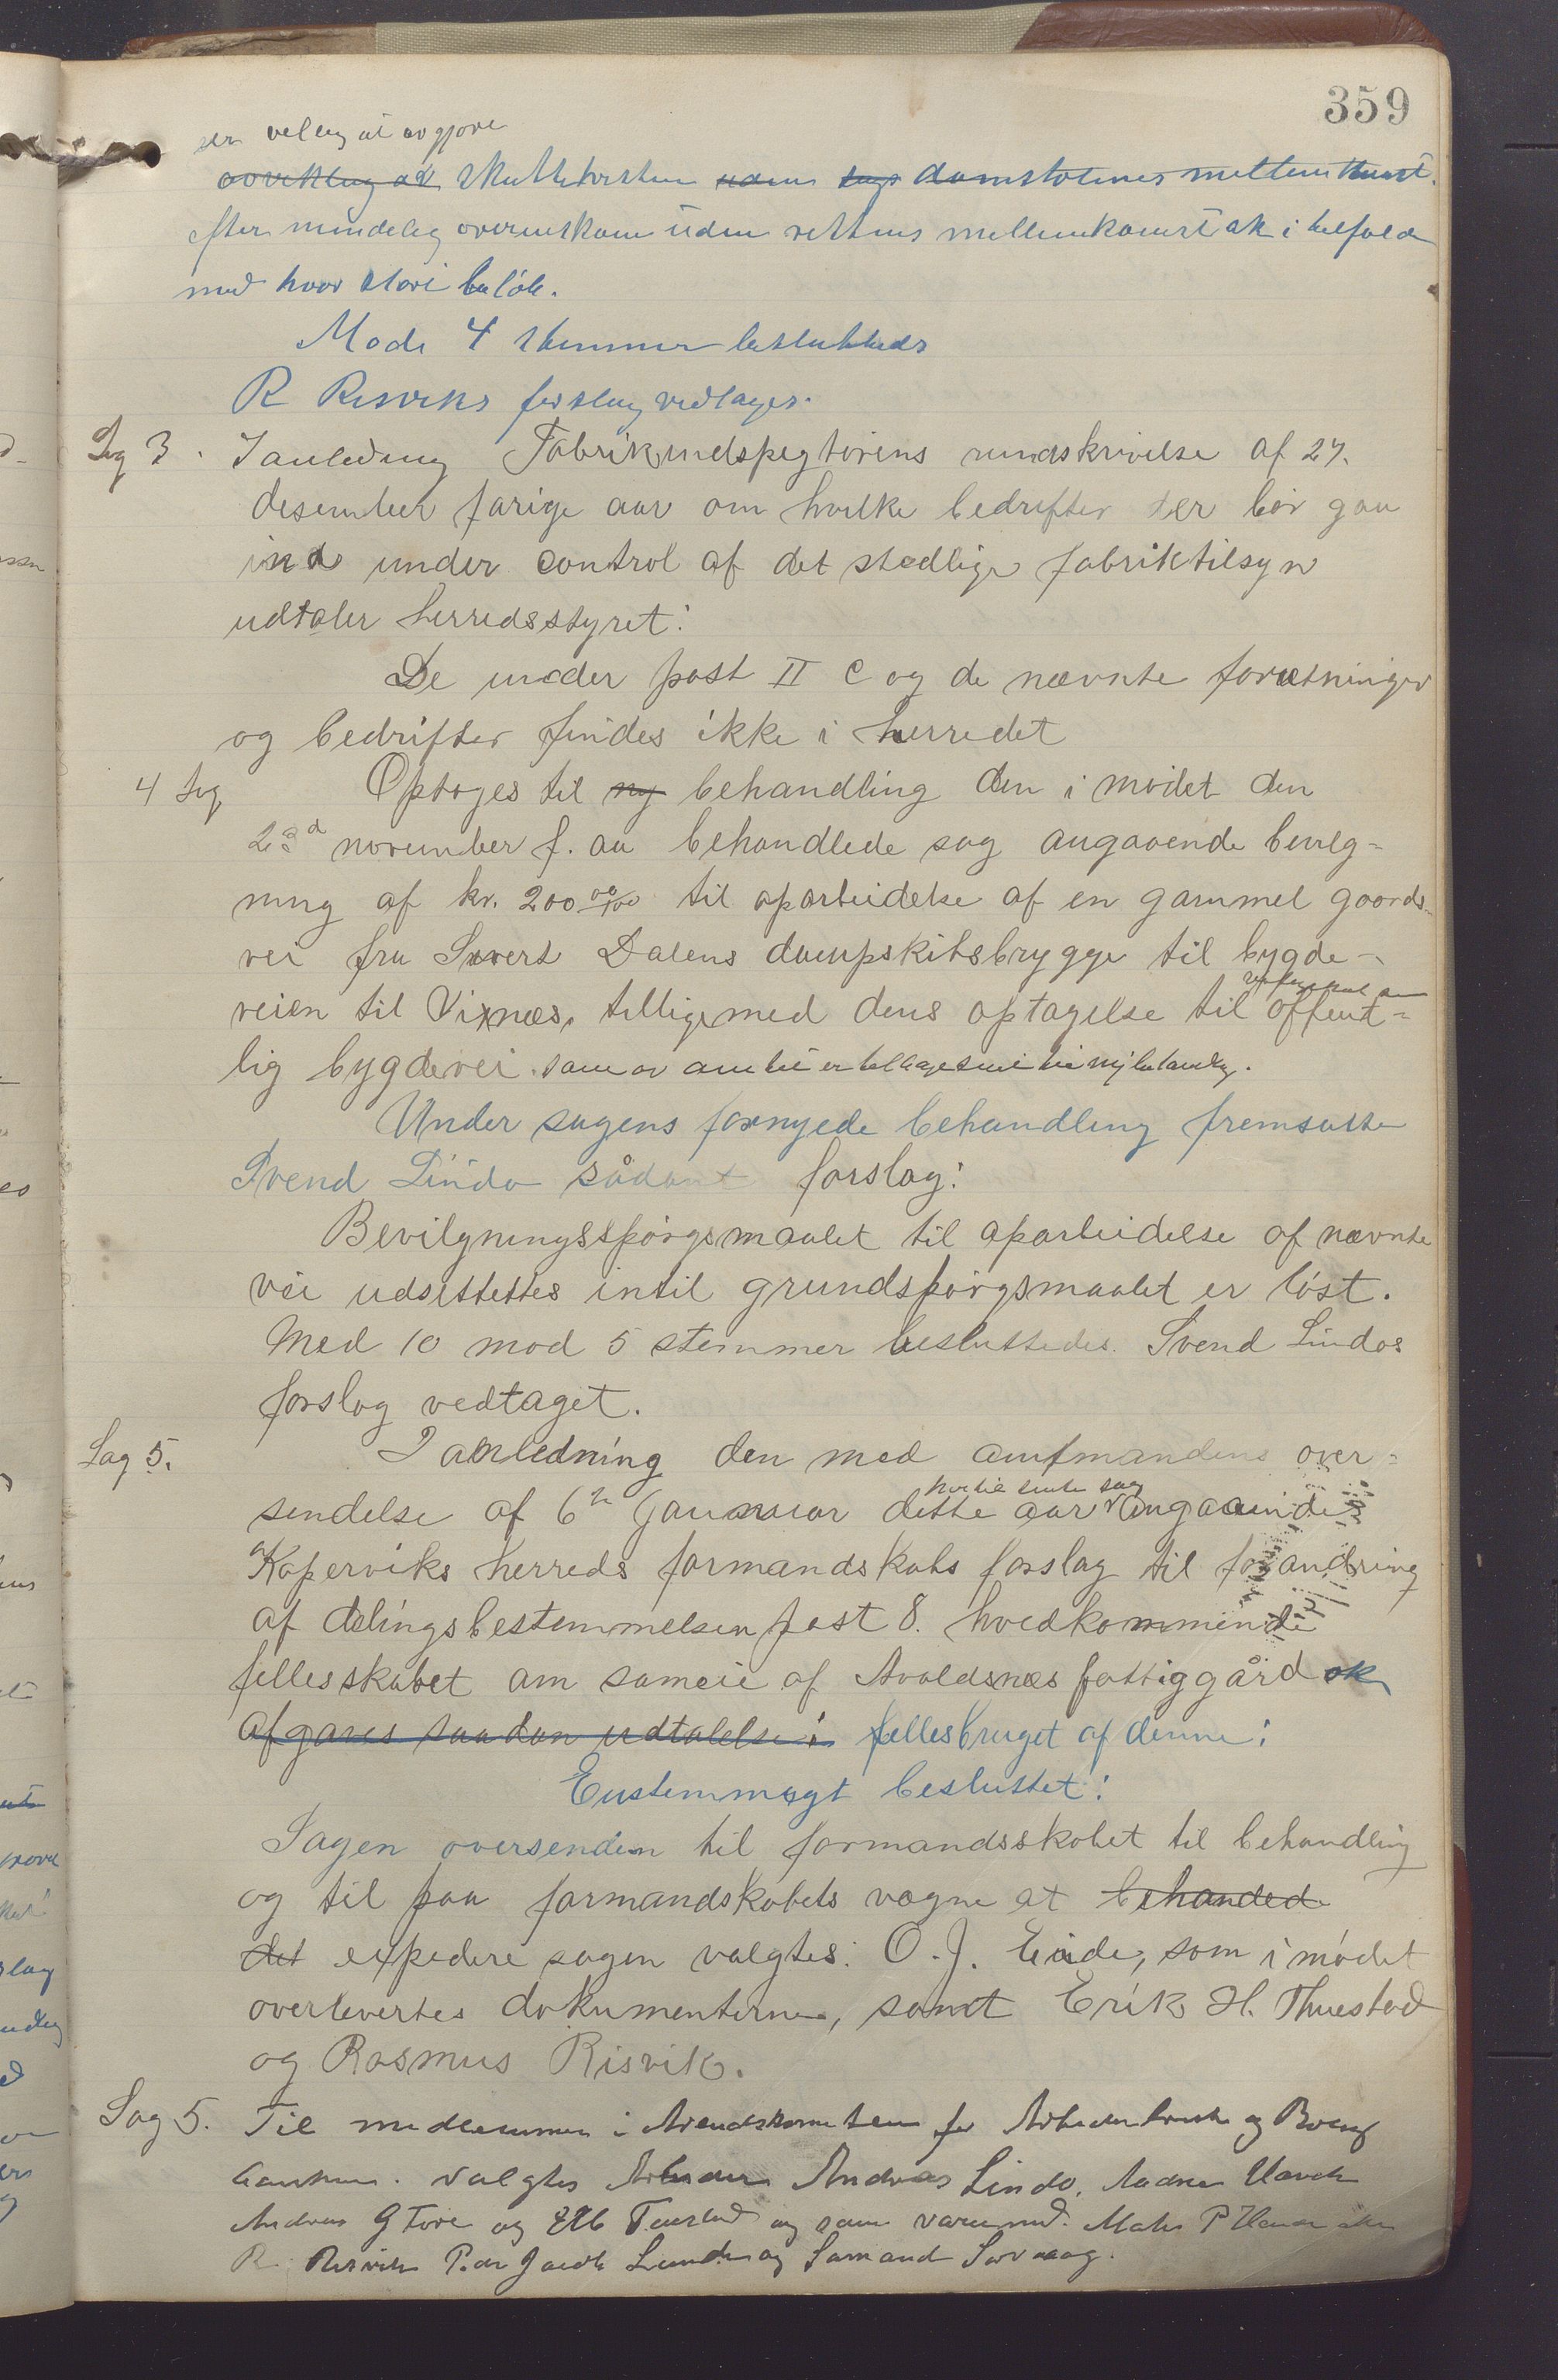 359
villig at avgjøre
skattekisten domstolenes mellemkomst.
efter mindelig overenskom uden rettens mellemkomst ok i tilfælde
med hvor stort beløb.
Mode 4 stemmer besluttedes
R Risviks forslag vedtages.
Sag 3. I anledning Fabrikindspegtørens rundskrivelse af 27.
desember farige aar om hvilke bedrifter der bør gaa
ind under control af det stedlige fabriktilsyn
udtaler herredsstyret:
De under post II c og de nævnte foretninger
og bedrifter findes ikke i herredet
4 Sag Optoges til ny behandling den i mødet den
23d november f. aa behandlede sag angaaende bevilg-
ning af kr. 200 00/00 til oparbeidelse af en gammel gaards-
vei fra Sivert Dalens dampskibsbrygge til bygde-
veien til Visnæs, tilligemed dens optagelse til offent-
lig bygdevei. som av amtet er
Under sagens fornyede behandling fremsatte
Svend Lindø sådant forslag:
Bevilgningsspørgsmaalet til oparbeidelse af nævnte
vei udsettettes intil grundspørgsmaalet er løst.
Med 10 mod 5 stemmer besluttedes Svend Lindøs
forslag vedtaget.
Sag 5. I anledning den med amtmandens over-
sendelse af 6te Januar dette aar hertil sente sag angaaende
Kopervíks herreds formandskabs forslag til forandring
af delingsbestemmelsen post 8. hvedkommende
fellesskabet om sameie af Avaldsnæs fattiggård ok
afgaves saadan udtalelse i fællesbruget af denne:
Enstemmigt besluttet:
Sagen oversenden til formandsskabet til behandling
og til paa formandskabets vægne at behanded
det expedere sagen valgtes: O. J. Eide, som i mødet
overlevertes dokumenterne, samt Erik H. Thuestad
og Rasmus Risvik.
Sag 5. Til medlemmer i for Arbeider og
valgtes Andreas Lindø,
Andreas G Tore og Tuestad og som varemend.
R Risvik Peder Jacob Lunde og Samand Sørvaag.